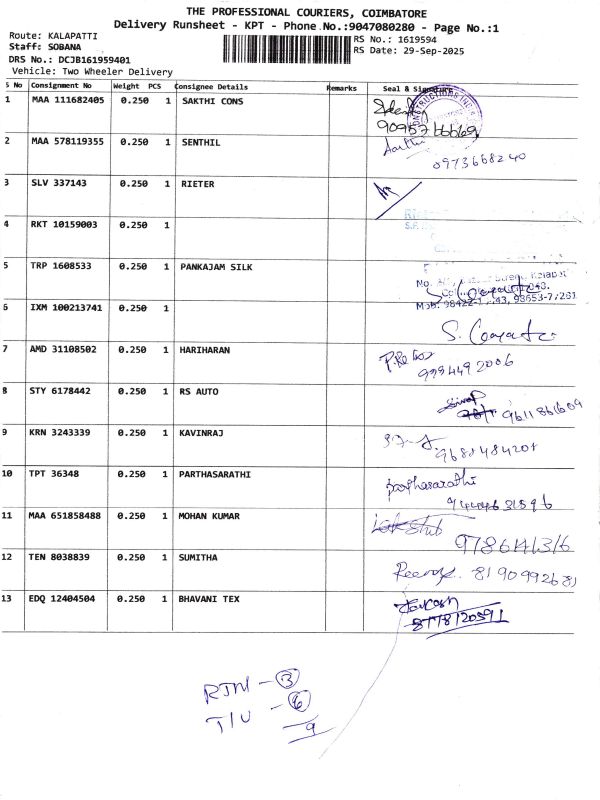 THE PROFESSIONAL COURIERS, COIMBATORE
Delivery Runsheet - KPT - Phone No.:9047080280 - Page No.:1
Route: KALAPATTI
Staff: SOBANA
DRS No.: DCJB161959401
Vehicle: Two Wheeler Delivery
RS No.: 1619594
RS Date: 29-Sep-2025
S No Consignment No Weight PCS Consignee Details Remarks Seal & Signature
1 MAA 111682405 0.250 1 SAKTHI CONS
2 MAA 578119355 0.250 1 SENTHIL 0973668240
3 SLV 337143 0.250 1 RIETER
4 RKT 10159003 0.250 1
5 TRP 1608533 0.250 1 PANKAJAM SILK
6 IXM 100213741 0.250 1
7 AMD 31108502 0.250 1 HARIHARAN
9994492006
8 STY 6178442 0.250 1 RS AUTO 9611861609
9 KRN 3243339 0.250 1 KAVINRAJ
9681484201
10 TPT 36348 0.250 1 PARTHASARATHI parthasarathi
11 MAA 651858488 0.250 1 MOHAN KUMAR
12 TEN 8038839 0.250 1 SUMITHA 8190992681
13 EDQ 12404504 0.250 1 BHAVANI TEX
8778120591
RTM - 3
T/U - 6
9